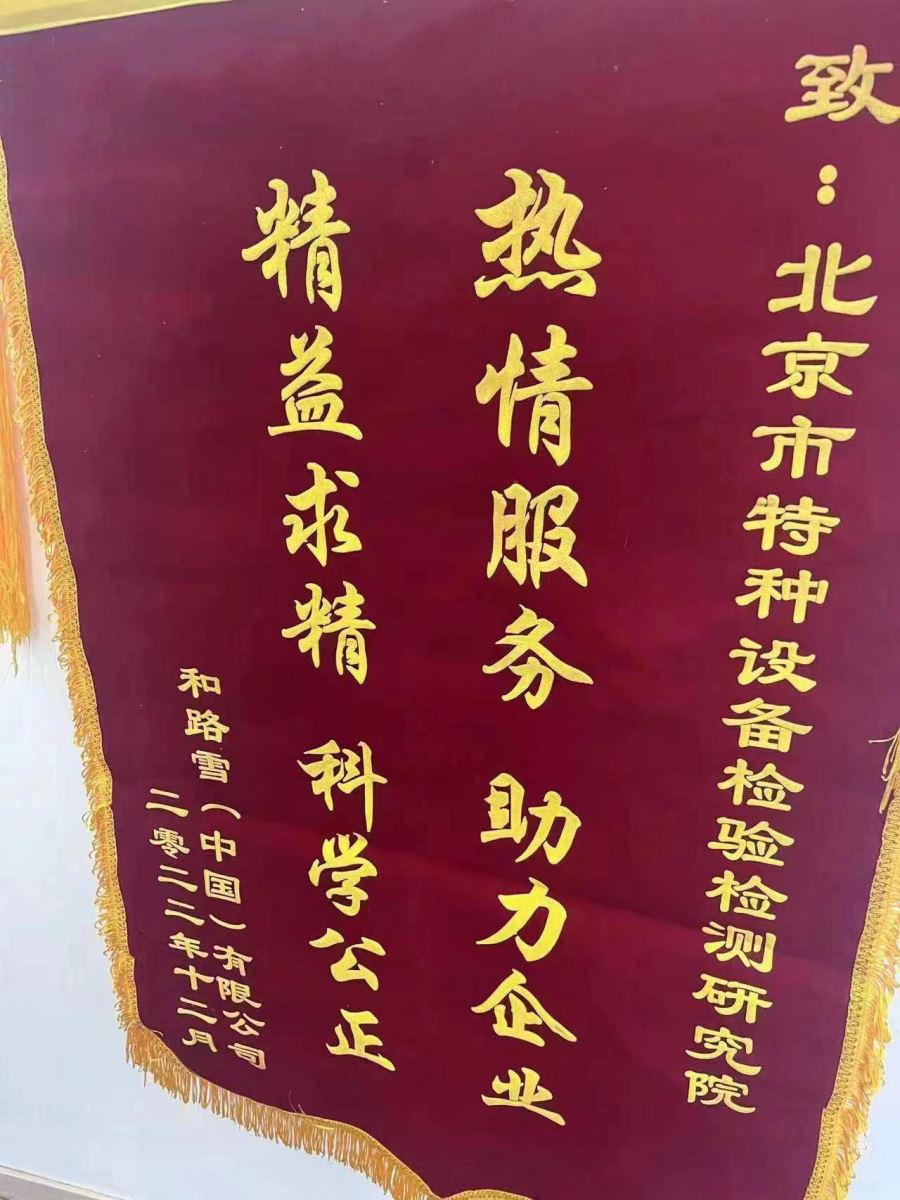 致：北京市特种设备检验检测研究院
热情服务 助力企业
精益求精 科学公正
和路雪（中国）有限公司
二零二二年十二月